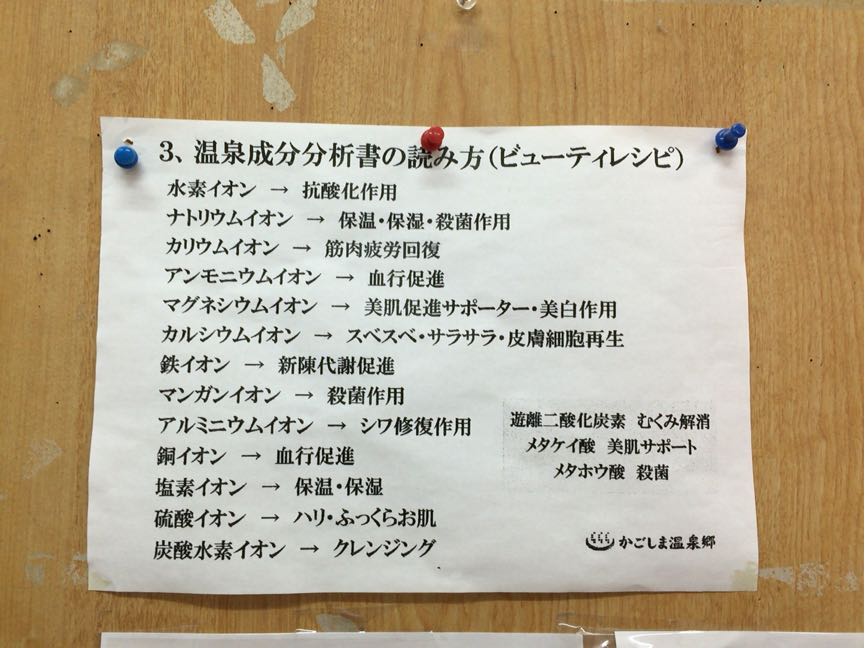 3、温泉成分分析書の読み方(ビューティレシピ)
水素イオン → 抗酸化作用
ナトリウムイオン → 保温・保湿・殺菌作用
カリウムイオン → 筋肉疲労回復
アンモニウムイオン → 血行促進
マグネシウムイオン → 美肌促進サポーター・美白作用
カルシウムイオン → スベスベ・サラサラ・皮膚細胞再生
鉄イオン → 新陳代謝促進
マンガンイオン → 殺菌作用
アルミニウムイオン → シワ修復作用
銅イオン → 血行促進
塩素イオン → 保温・保湿
硫酸イオン → ハリ・ふっくらお肌
炭酸水素イオン → クレンジング
遊離二酸化炭素 むくみ解消
メタケイ酸 美肌サポート
メタホウ酸 殺菌
かごしま温泉郷